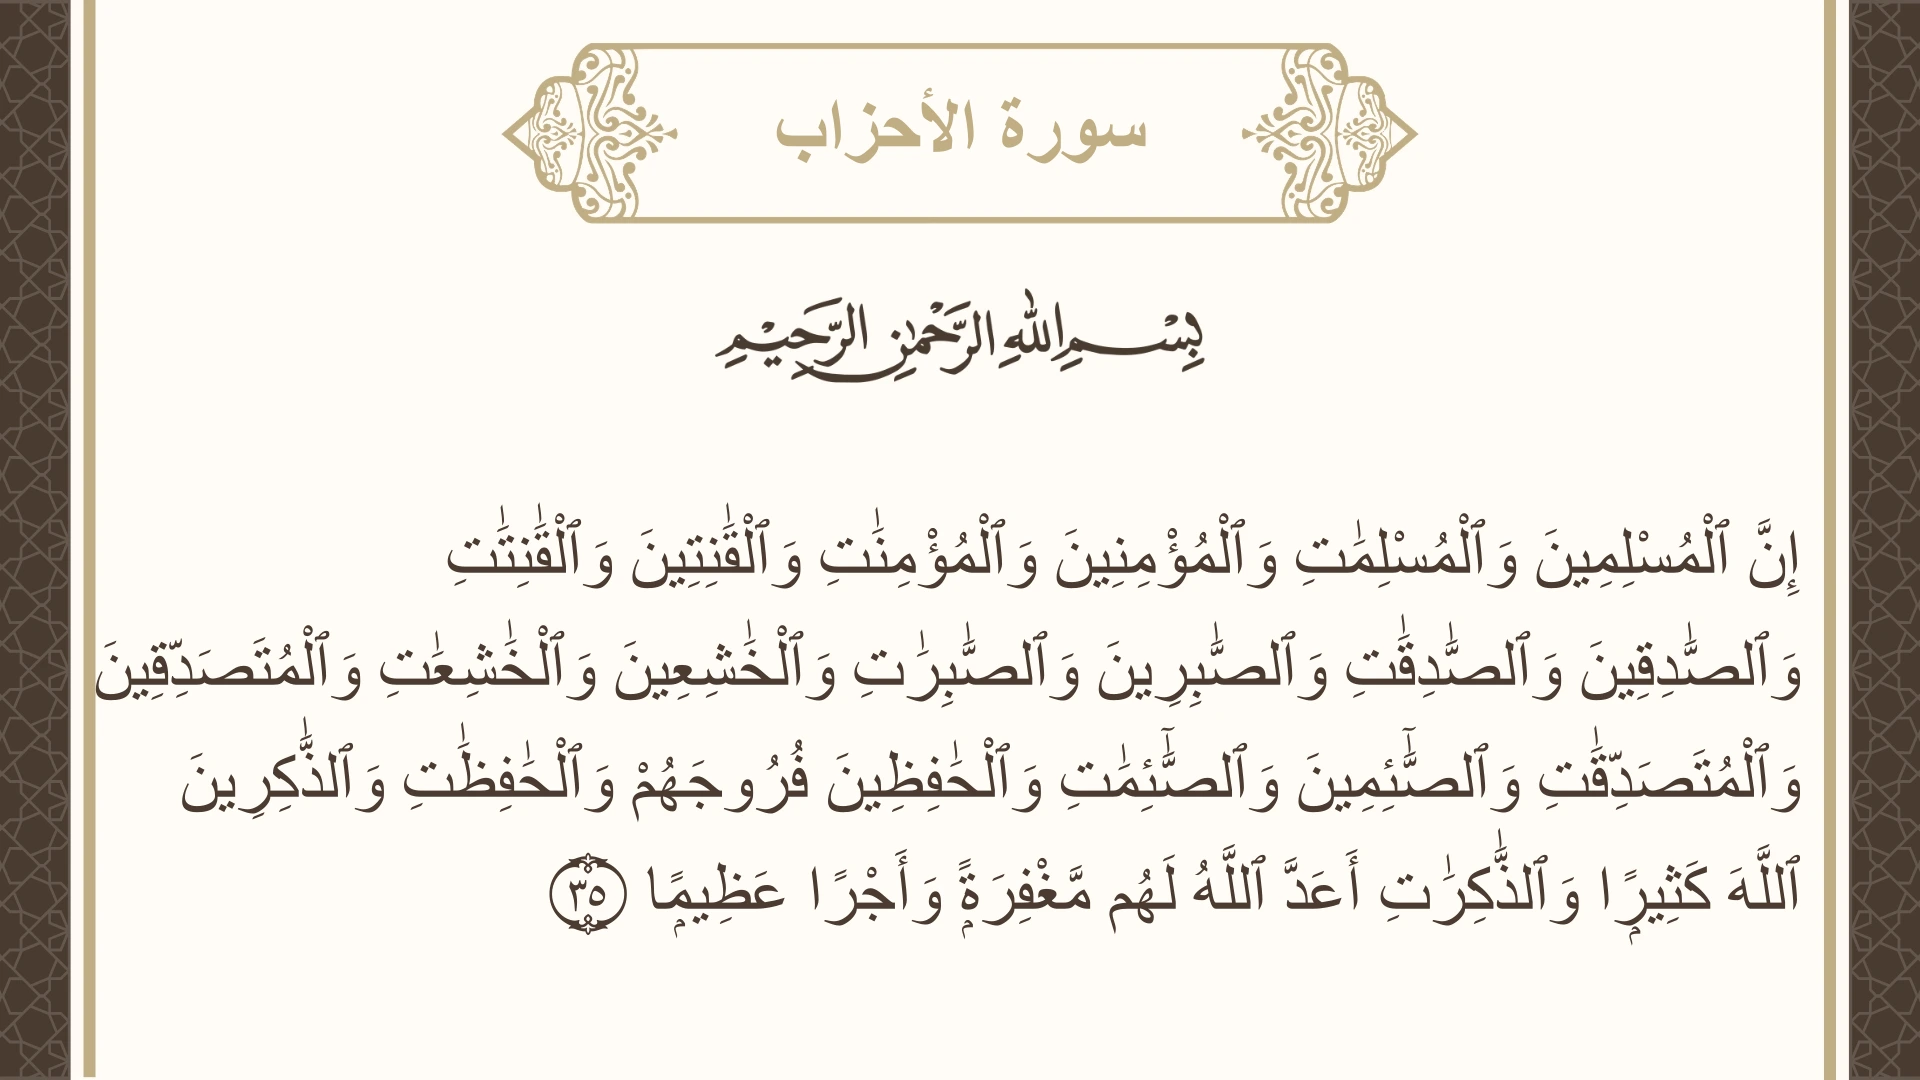 سورة الأحزاب
بِسْمِ اللهِ الرَّحْمٰنِ الرَّحِيْمِ
إِنَّ ٱلْمُسْلِمِينَ وَٱلْمُسْلِمَٰتِ وَٱلْمُؤْمِنِينَ وَٱلْمُؤْمِنَٰتِ وَٱلْقَٰنِتِينَ وَٱلْقَٰنِتَٰتِ
وَٱلصَّٰدِقِينَ وَٱلصَّٰدِقَٰتِ وَٱلصَّٰبِرِينَ وَٱلصَّٰبِرَٰتِ وَٱلْخَٰشِعِينَ وَٱلْخَٰشِعَٰتِ وَٱلْمُتَصَدِّقِينَ
وَٱلْمُتَصَدِّقَٰتِ وَٱلصَّٰٓئِمِينَ وَٱلصَّٰٓئِمَٰتِ وَٱلْحَٰفِظِينَ فُرُوجَهُمْ وَٱلْحَٰفِظَٰتِ وَٱلذَّٰكِرِينَ
ٱللَّهَ كَثِيرًۭا وَٱلذَّٰكِرَٰتِ أَعَدَّ ٱللَّهُ لَهُم مَّغْفِرَةًۭ وَأَجْرًا عَظِيمًۭا ٣٥